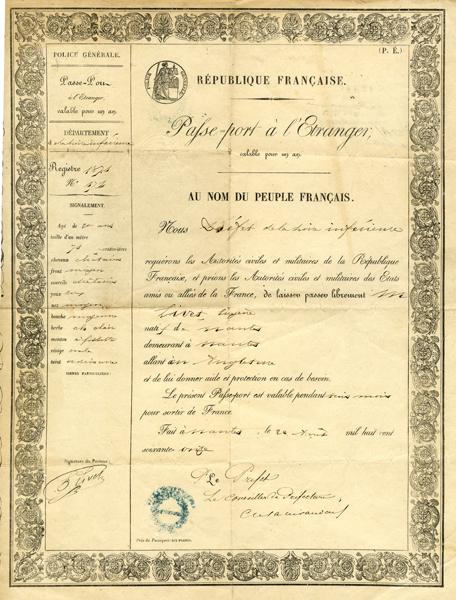 POLICE GÉNÉRALE.
Passe-Port
à l'Etranger,
valable pour un an.
DÉPARTEMENT
de la loire inférieure
Registre 1871
N°
SIGNALEMENT.
Agé de 20 ans
taille d'un mètre
centimètres
cheveux châtains
front moyen
sourcils châtains
yeux
nez moyen
bouche moyenne
barbe
menton
visage ovale
teint ordinaire
SIGNES PARTICULIERS:
Signature du Porteur:
(P. É.)
RÉPUBLIQUE FRANÇAISE.
Passe-port à l'Etranger,
valable pour un an.
AU NOM DU PEUPLE FRANÇAIS.
Nous Préfet de la loire inférieure
requérons les Autorités civiles et militaires de la République
Française, et prions les Autorités civiles et militaires des Etats
amis ou alliés de la France, de laisser passer librement
natif de nantes
demeurant à nantes
allant en Angleterre
et de lui donner aide et protection en cas de besoin.
Le présent Passe-port est valable pendant mois
pour sortir de France.
Fait à nantes le Août mil huit cent
soixante onze
Pr Le Préfet
Le Conseiller de Préfecture,
Prix du Passeport: DIX FRANCS.